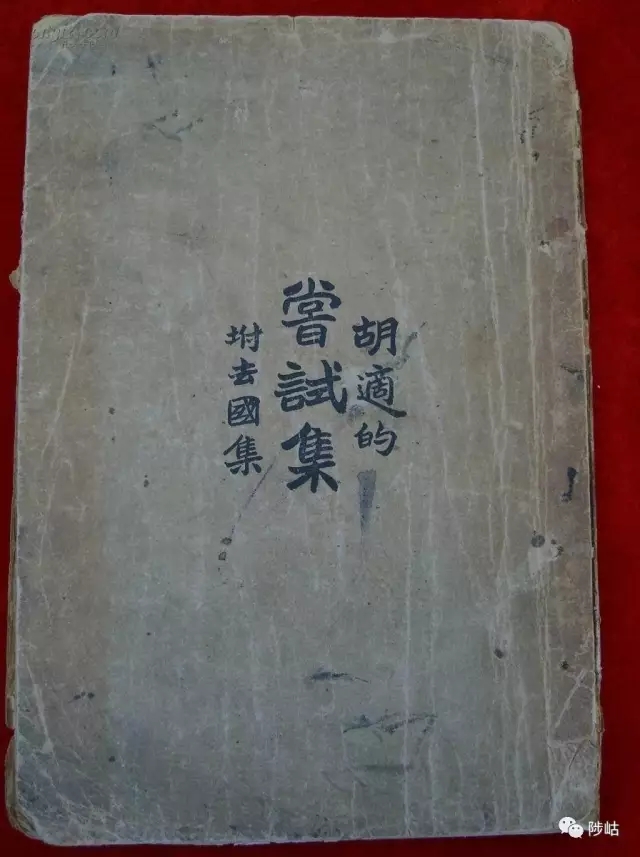 胡適的
嘗試集
坿去國集
陟岵